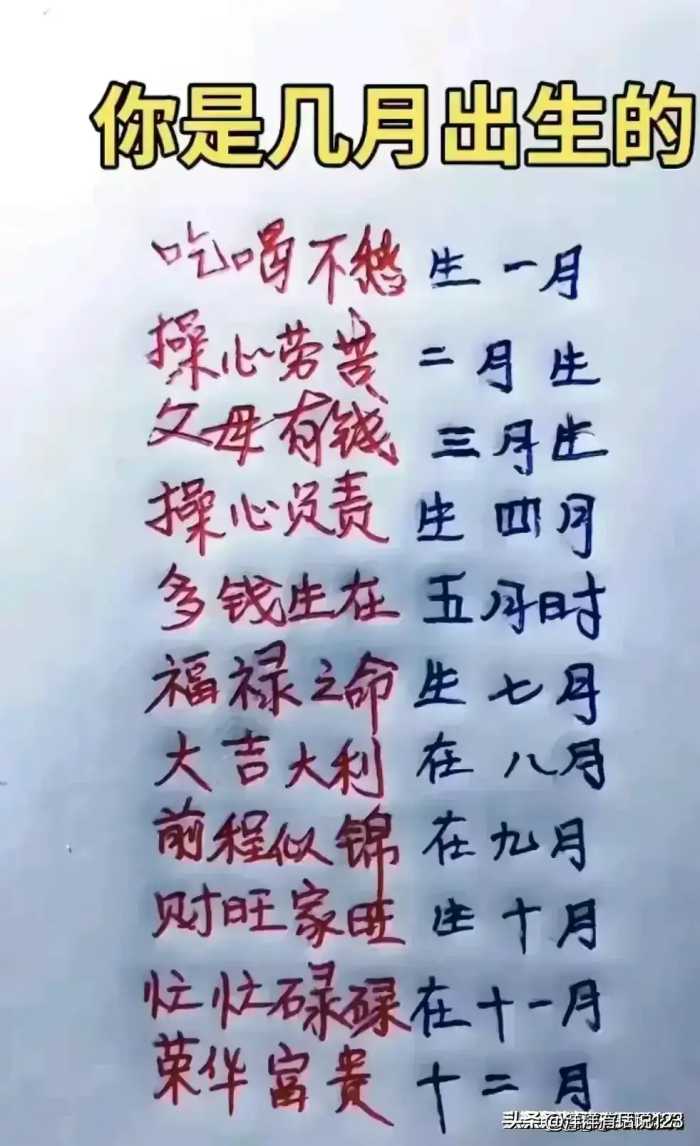 你是几月出生的
吃喝不愁生一月
操心劳苦二月生
父母有钱三月生
操心负责生四月
多钱生在五月时
福禄之命生七月
大吉大利在八月
前程似锦在九月
财旺家旺生十月
忙忙碌碌在十一月
荣华富贵十二月